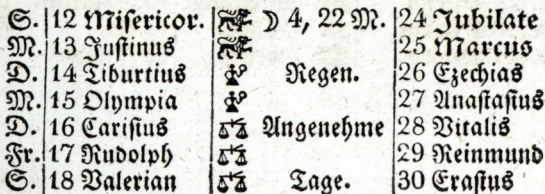 S. 12 Misericor. ☽ 4, 22 M. 24 Jubilate
M. 13 Justinus 25 Marcus
D. 14 Tiburtius Regen. 26 Ezechias
M. 15 Olympia 27 Anastasius
D. 16 Carisius Angenehme 28 Vitalis
Fr. 17 Rudolph 29 Reinmund
S. 18 Valerian Tage. 30 Erastus